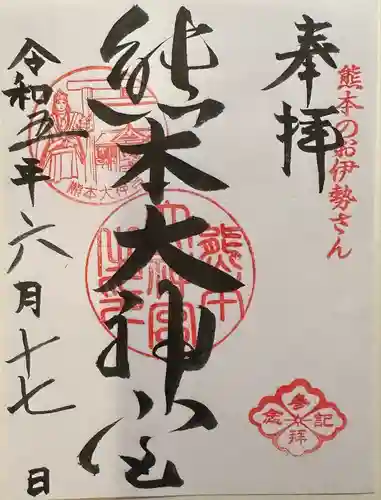 奉拝
熊本のお伊勢さん
熊本大神宮
令和五年六月十七日
熊本大神宮
参拝記念